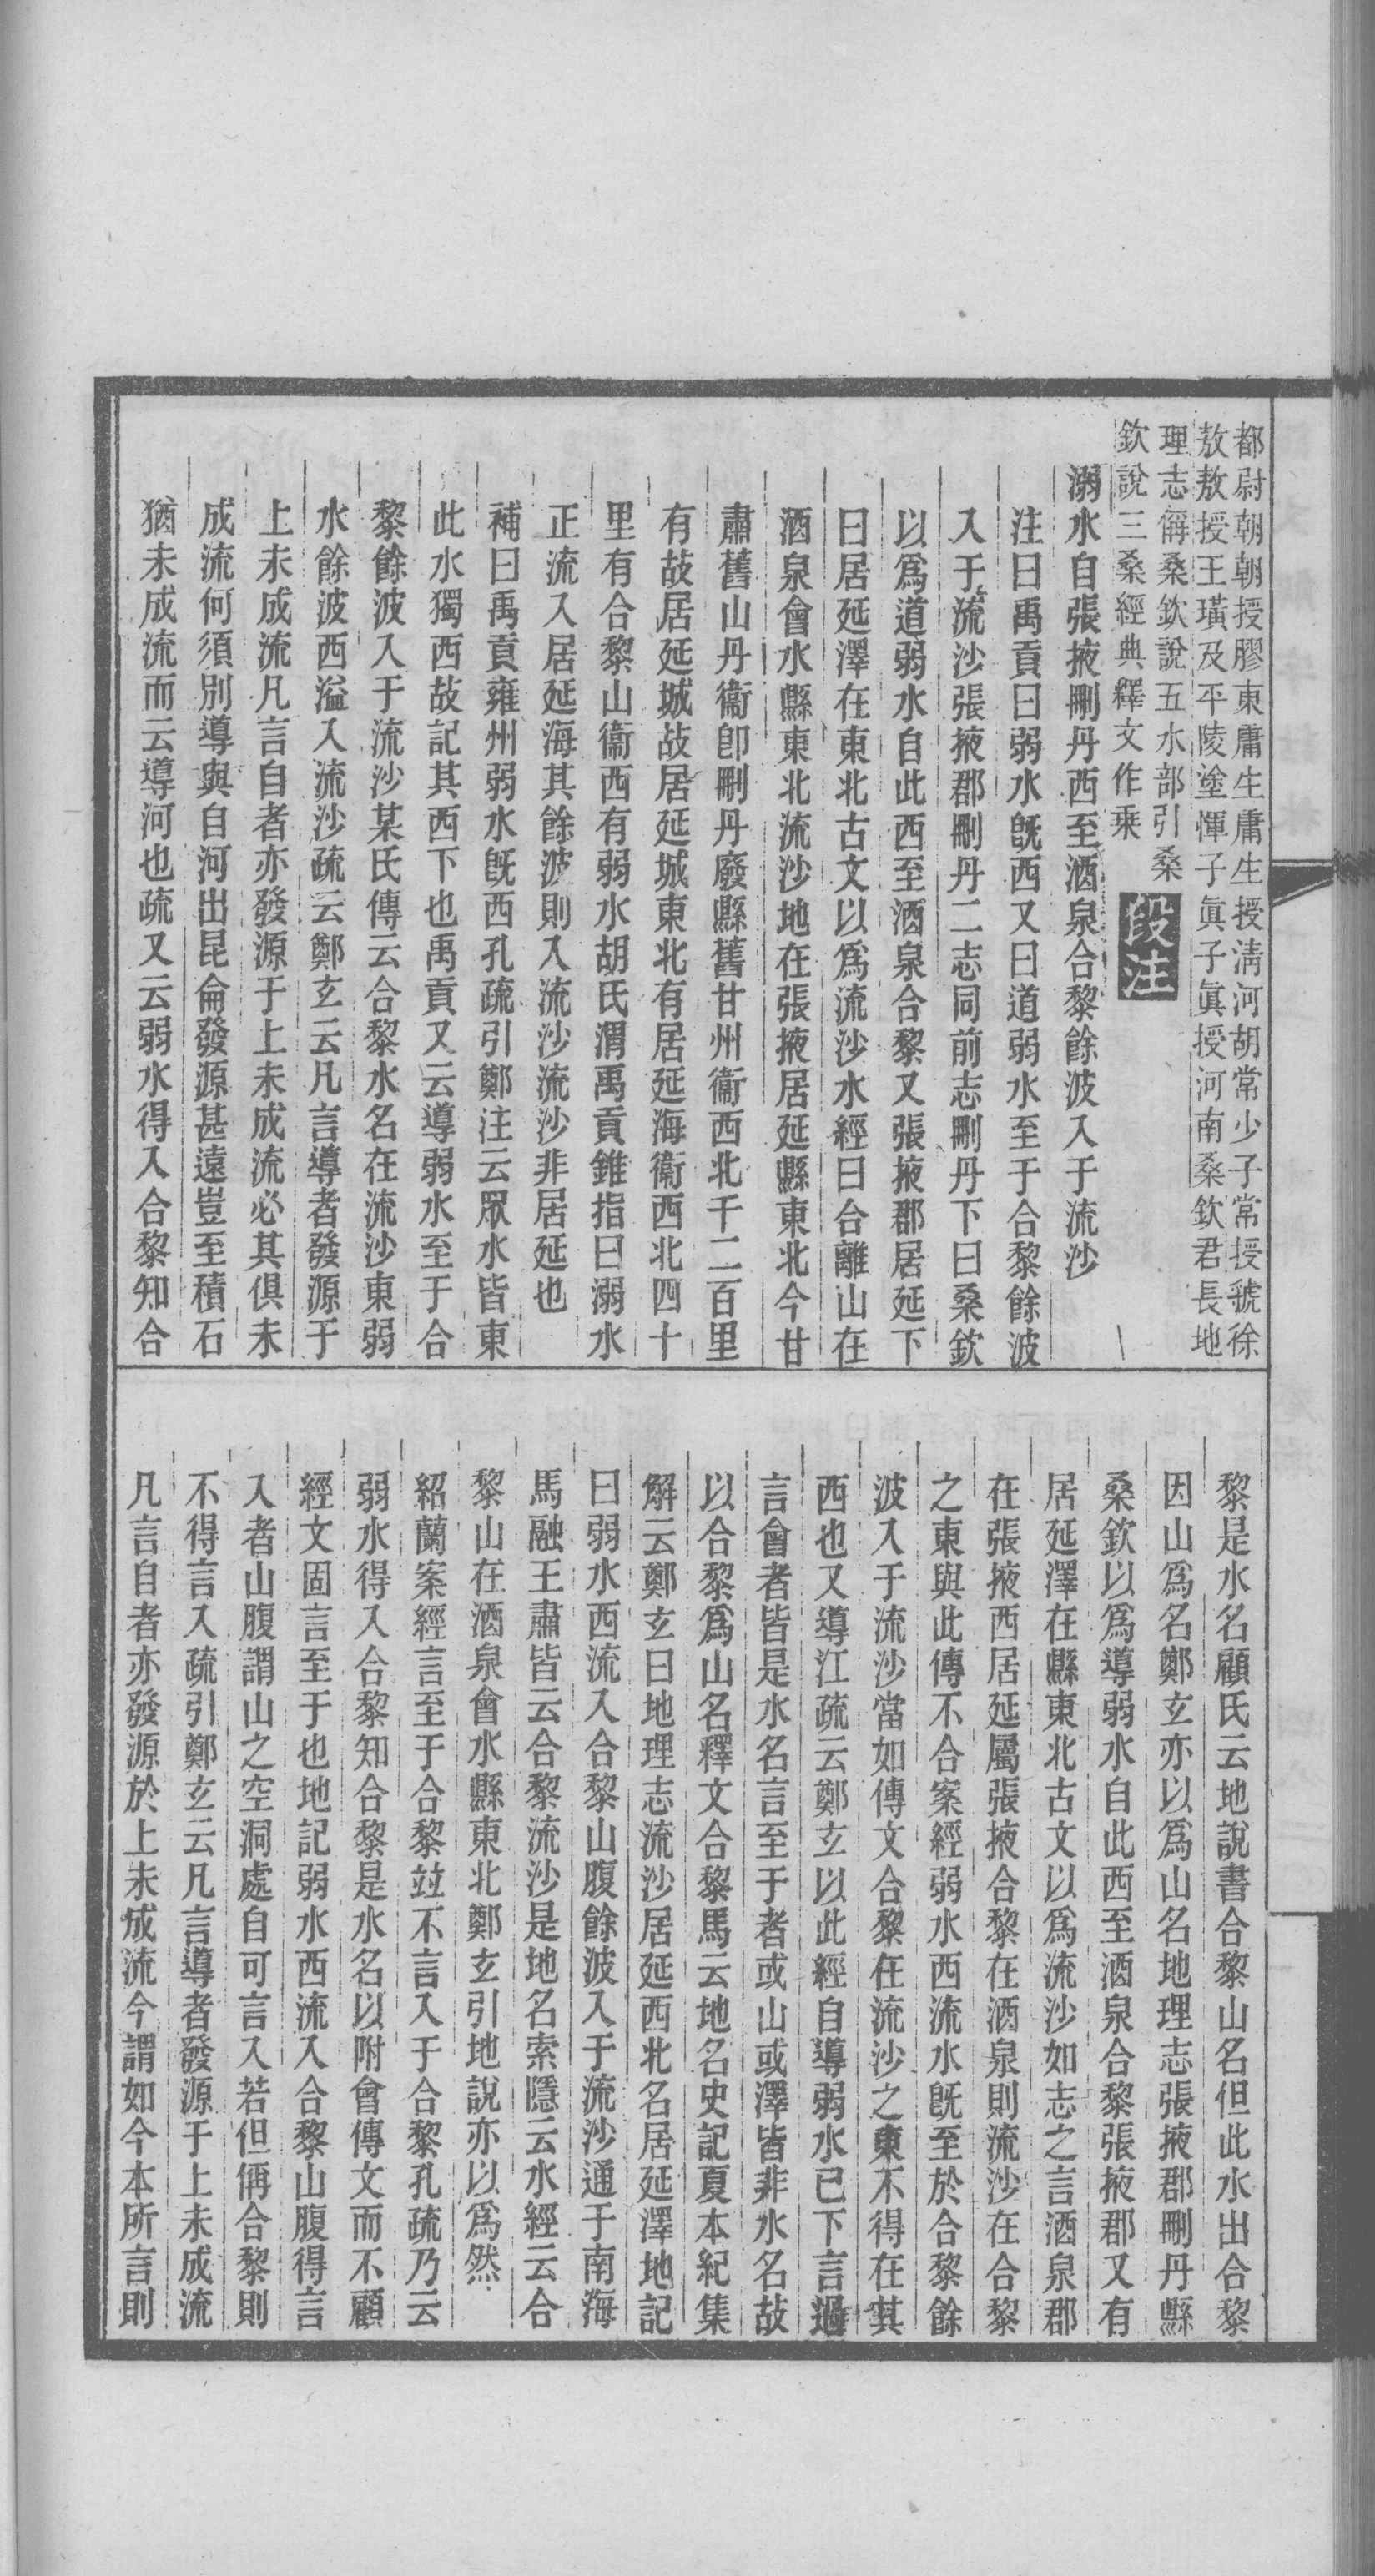 都尉朝朝授膠東庸生庸生授淸河胡常少子常授虢徐
敖敖授王璜及平陵塗惲子眞子眞授河南桑欽君長地
理志偁桑欽說五水部引桑
欽說三桑經典釋文作桒
段注
溺水自張掖刪丹西至酒泉合黎餘波入于流沙
注曰禹貢曰弱水旣西又曰道弱水至于合黎餘波
入于流沙張掖郡刪丹二志同前志刪丹下曰桑欽
以爲道弱水自此西至酒泉合黎又張掖郡居延下
曰居延澤在東北古文以爲流沙水經曰合離山在
酒泉會水縣東北流沙地在張掖居延縣東北今甘
肅舊山丹衞卽刪丹廢縣舊甘州衞西北千二百里
有故居延城故居延城東北有居延海衞西北四十
里有合黎山衞西有弱水胡氏渭禹貢錐指曰溺水
正流入居延海其餘波則入流沙流沙非居延也
補曰禹貢雍州弱水旣西孔疏引鄭注云眾水皆東
此水獨西故記其西下也禹貢又云導弱水至于合
黎餘波入于流沙某氏傳云合黎水名在流沙東弱
水餘波西溢入流沙疏云鄭玄云凡言導者發源于
上未成流凡言自者亦發源于上未成流必其俱未
成流何須別導與自河出昆侖發源甚遠豈至積石
猶未成流而云導河也疏又云弱水得入合黎知合
黎是水名顧氏云地說書合黎山名但此水出合黎
因山爲名鄭玄亦以爲山名地理志張掖郡刪丹縣
桑欽以爲導弱水自此西至酒泉合黎張掖郡又有
居延澤在縣東北古文以爲流沙如志之言酒泉郡
在張掖西居延屬張掖合黎在酒泉則流沙在合黎
之東與此傳不合案經弱水西流水旣至於合黎餘
波入于流沙當如傳文合黎在流沙之東不得在其
西也又導江疏云鄭玄以此經自導弱水已下言過
言會者皆是水名言至于者或山或澤皆非水名故
以合黎爲山名釋文合黎馬云地名史記夏本紀集
解云鄭玄曰地理志流沙居延西北名居延澤地記
曰弱水西流入合黎山腹餘波入于流沙通于南海
馬融王肅皆云合黎流沙是地名索隱云水經云合
黎山在酒泉會水縣東北鄭玄引地說亦以爲然
紹蘭案經言至于合黎竝不言入于合黎孔疏乃云
弱水得入合黎知合黎是水名以附會傳文而不顧
經文固言至于也地記弱水西流入合黎山腹得言
入者山腹謂山之空洞處自可言入若但偁合黎則
不得言入疏引鄭玄云凡言導者發源于上未成流
凡言自者亦發源於上未成流今謂如今本所言則